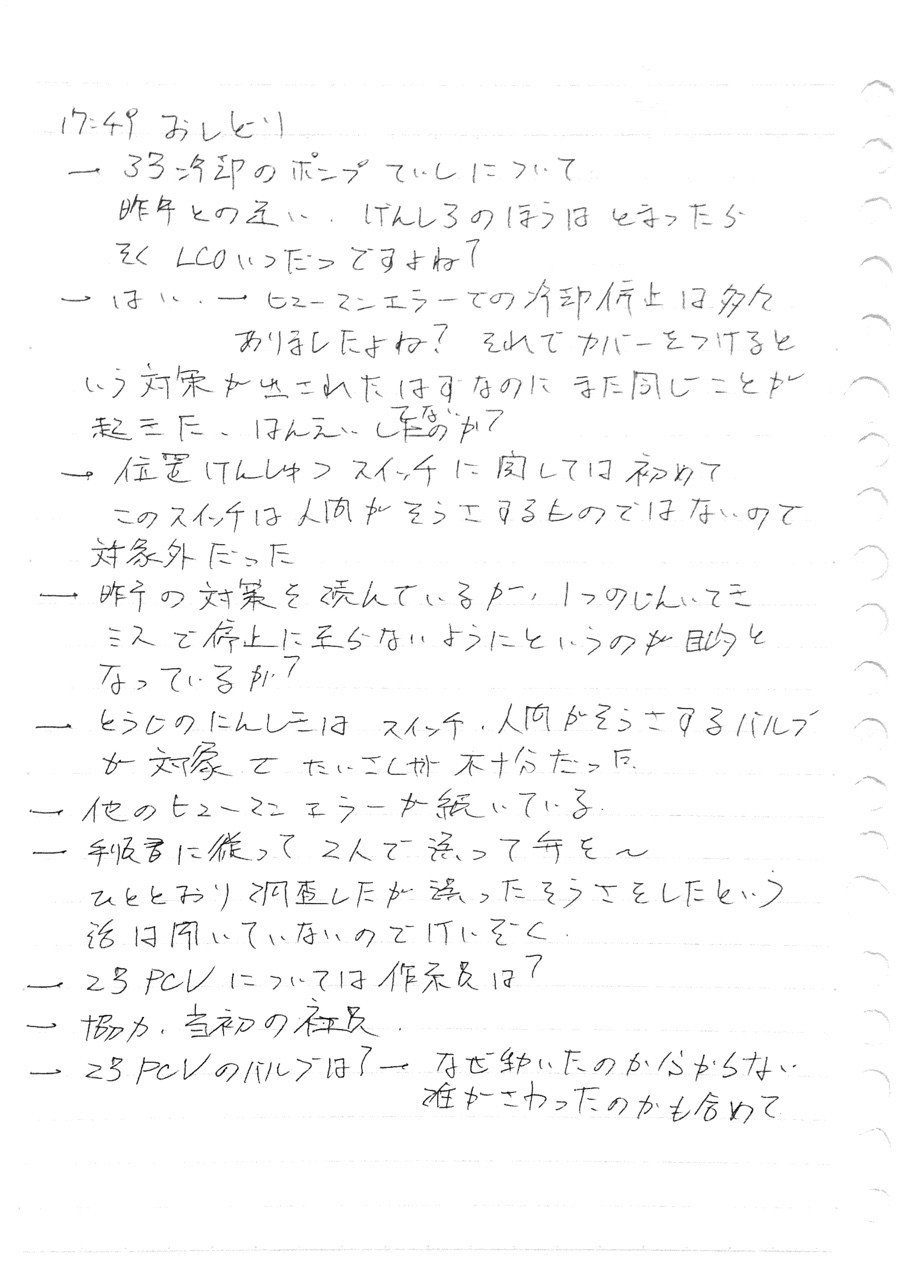 17:49 おしどり
→ 3号冷却のポンプていしについて
昨年との違い、げんしろのほうは とまったら
そく LCOいつだつですよね?
→ はい. → ヒューマンエラーでの冷却停止は多々
ありましたよね? それで カバーをつけると
いう対策が出されたはずなのに また同じことが
起きた、はんえいしてないのか?
→ 位置けんしゅつ スイッチに関しては 初めて
このスイッチは人間がそうさするものではないので
対象外だった
→ 昨年の対策を読んでいるが、1つのじんいてき
ミスで停止に至らないようにというのが目的と
なっているが?
→ とうじのにんしきは スイッチ、人間がそうさするバルブ
が対象で たいさくが不十分だった.
→ 他のヒューマンエラーが続いている.
→ 手順書に従って 2人で誤って弁を〜
ひととおり調査したが誤ったそうさをしたという
話は聞いていないのでけいぞく.
→ 2号PCVについては作業員は?
→ 協力、当初の社員.
→ 2号PCVのバルブは? → なぜ動いたのか分からない
誰がさわったのかも含めて